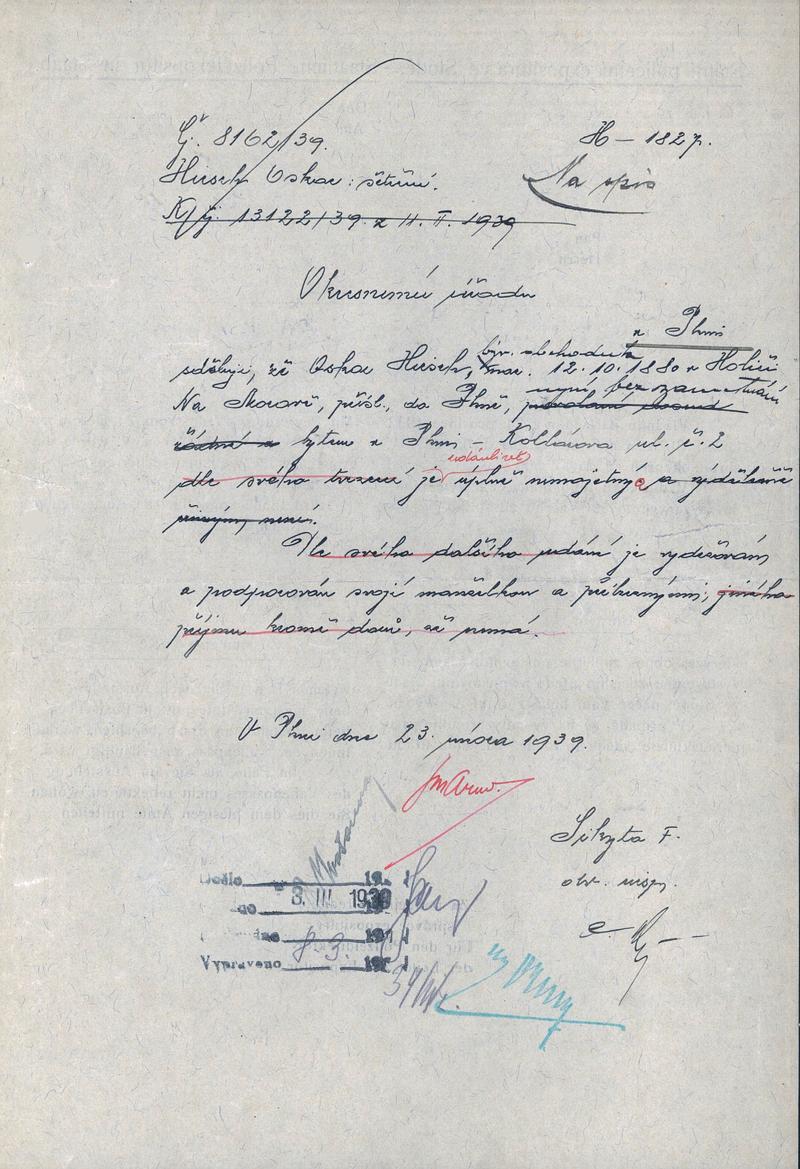 Čj. 8162/39.
H – 1827.
Hirsch Oskar: šetření.
Na spis
K čj. 13122/39 z 11. I. 1939
Okresnímu úřadu
v Plzni
býv. obchodník
sděluji, že Oskar Hirsch, nar. 12.10.1880 v Holiči
nyní bez zaměstnání
Na Moravě, přísl. do Plzně, povolání
žádné a bytem v Plzni – Kollárova ul. č. 2
událi
dle svého tvrzení je úplně nemajetný a výdělečně
činným není.
Dle svého dalšího udání je vydržován
a podporován svojí manželkou a příbuznými, jiného
příjmu kromě darů, že nemá.
V Plzni dne 23. února 1939.
Sikyta F.
obv. insp.
Došlo 19
3. III 1939
8.3.
Vypraveno 19